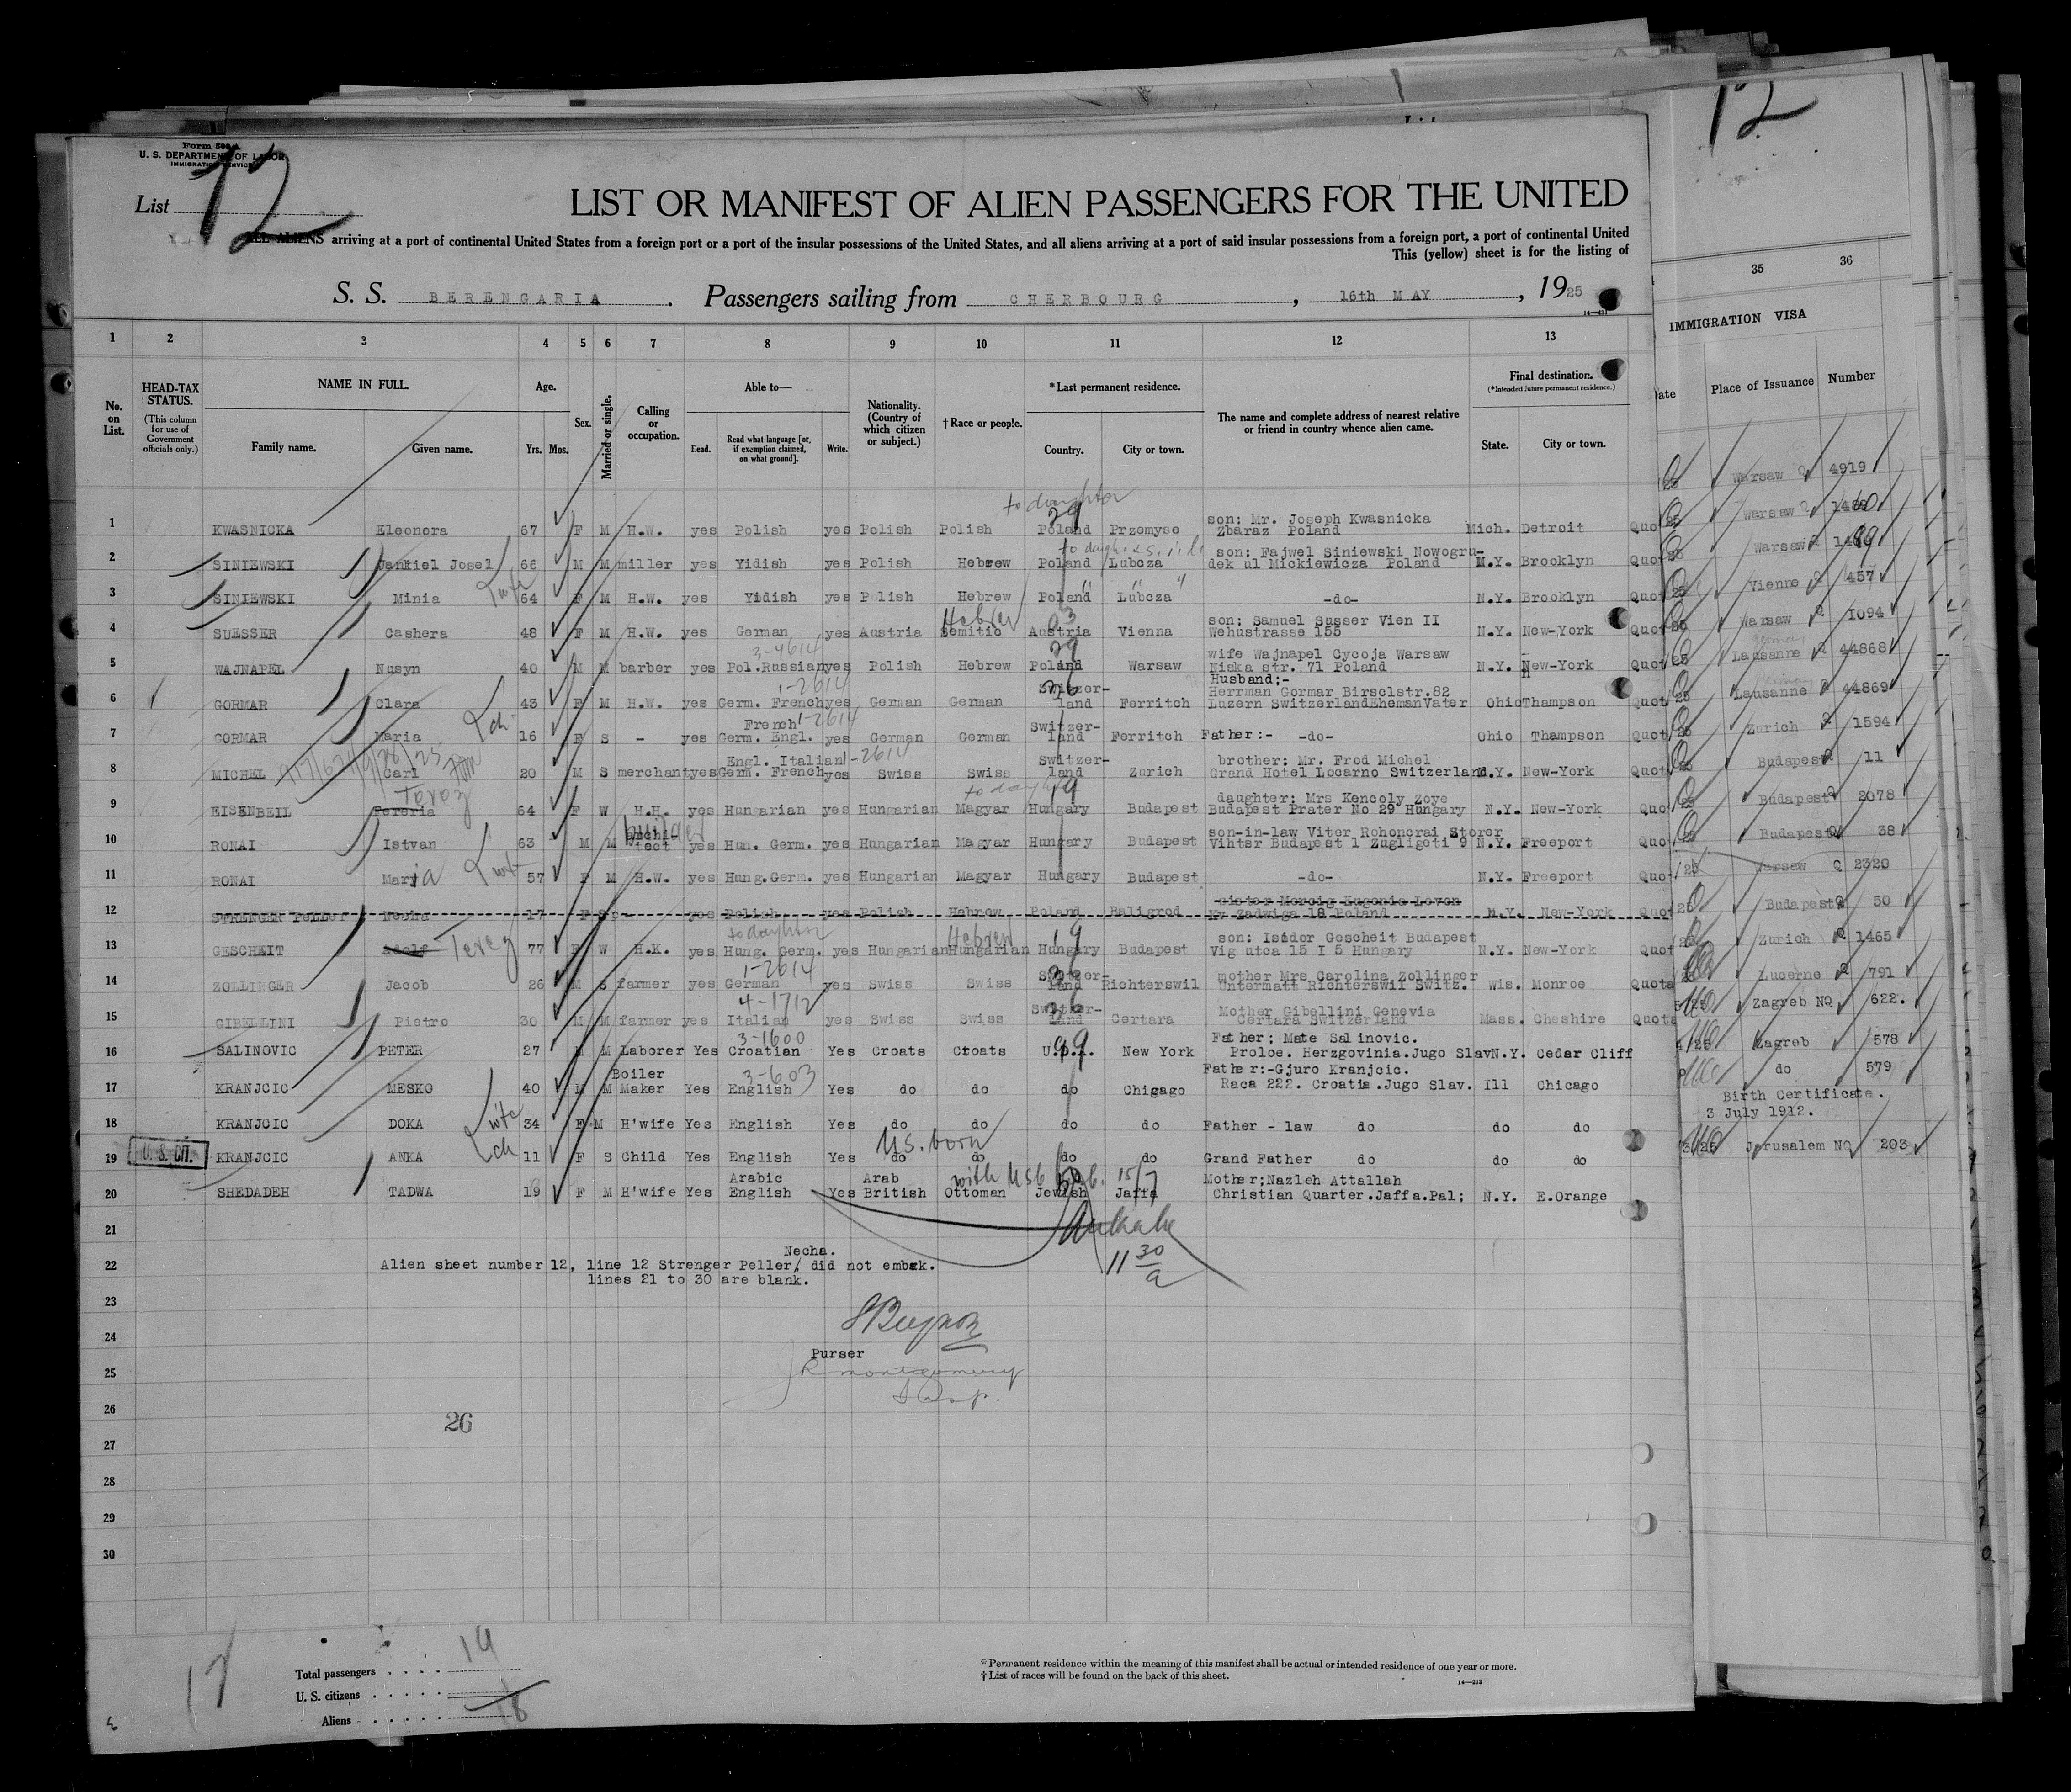 Form 500 A
U. S. DEPARTMENT OF LABOR
IMMIGRATION SERVICE
List 12
12
LIST OR MANIFEST OF ALIEN PASSENGERS FOR THE UNITED
ALL ALIENS arriving at a port of continental United States from a foreign port or a port of the insular possessions of the United States, and all aliens arriving at a port of said insular possessions from a foreign port, a port of continental United
This (yellow) sheet is for the listing of
S. S. BERENGARIA . Passengers sailing from CHERBOURG , 16th MAY , 1925
1 2 3 4 5 6 7 8 9 10 11 12 13 35 36
IMMIGRATION VISA
No. on List. HEAD-TAX STATUS. (This column for use of Government officials only.) NAME IN FULL. Age. Sex. Married or single. Calling or occupation. Able to— Nationality. (Country of which citizen or subject.) †Race or people. *Last permanent residence. The name and complete address of nearest relative or friend in country whence alien came. Final destination. (*Intended future permanent residence.)
Family name. Given name. Yrs. Mos. Read. Read what language [or, if exemption claimed, on what ground]. Write. Country. City or town. State. City or town. Date Place of Issuance Number
to daughter
1 KWASNICKA Eleonora 67 F M H.W. yes Polish yes Polish Polish Poland Przemyse son: Mr. Joseph Kwasnicka Zbaraz Poland Mich. Detroit Quot
2 SINIEWSKI Jankiel Josel 66 M M miller yes Yidish yes Polish Hebrew Poland Lubcza son: Fajwel Siniewski Nowogru- dek ul Mickiewicza Poland N.Y. Brooklyn Quot
3 SINIEWSKI Minia wife 64 F M H.W. yes Yidish yes Polish Hebrew Poland Lubcza -do- N.Y. Brooklyn Quot
4 SUESSER Cashera 48 F M H.W. yes German yes Austria Semitic Hebrew Austria Vienna son: Samuel Susser Vien II Wehustrasse 155 N.Y. New-York Quot
5 WAJNAPEL Nusyn 40 M M barber yes Pol.Russian yes Polish Hebrew Poland Warsaw wife Wajnapel Cycoja Warsaw Niska str. 71 Poland N.Y. New-York Quot
6 GORMAR Clara 43 F M H.W. yes Germ. French yes German German Switzer- land Ferritch Husband:- Herrman Gormar Birsolstr.82 Luzern Switzerland Eheman Vater Ohio Thompson Quot
7 CORMAR Maria ch 16 F S - yes French Germ. Engl. yes German German Switzer- land Ferritch Father:- -do- Ohio Thompson Quot
8 MICHEL Carl 20 M S merchant yes Engl. Italian Germ. French yes Swiss Swiss Switzer- land Zurich brother: Mr. Frod Michel Grand Hotel Locarno Switzerland N.Y. New-York Quot
9 EISENBEIL Pereria Terez 64 F W H.H. yes Hungarian yes Hungarian Magyar Hungary Budapest daughter: Mrs Kencoly Zoye Budapest Prater No 29 Hungary N.Y. New-York Quot
10 RONAI Istvan 63 M M archi- tect yes Hun. Germ. yes Hungarian Magyar Hungary Budapest son-in-law Viter Rohoncrai Storer Vihtsr Budapest 1 Zugligeti 9 N.Y. Freeport Quot
11 RONAI Marja 57 F M H.W. yes Hung.Germ. yes Hungarian Magyar Hungary Budapest -do- N.Y. Freeport Quot
12 STRENGER Peller Necha 17 F S - yes Polish yes Polish Hebrew Poland Baligrod sister Hercig Eugenia Lovon Zadwiga 18 Poland N.Y. New-York Quot
13 GESCHEIT Adolf Terez 77 F W H.K. yes Hung. Germ. yes Hungarian Hungarian Hebrew Hungary Budapest son: Isidor Gescheit Budapest Vig utca 15 I 5 Hungary N.Y. New-York Quot
14 ZOLLINGER Jacob 26 M S farmer yes German yes Swiss Swiss Switzer- land Richterswil mother Mrs Carolina Zollinger Untermatt Richterswil Switz. Wis. Monroe Quota
15 GIBELLINI Pietro 30 M M farmer yes Italian yes Swiss Swiss Switzer- land Certara Mother Gibellini Genevia Certara Switzerland Mass. Cheshire Quota
16 SALINOVIC PETER 27 M M Laborer Yes Croatian Yes Croats Croats U.S.A. New York Father; Mate Salinovic. Proloe. Herzgovinia.Jugo Slav N.Y. Cedar Cliff
17 KRANJCIC MESKO 40 M M Boiler Maker Yes English Yes do do do Chigago Father:-Gjuro Kranjcic. Raca 222. Croatia.Jugo Slav. Ill Chicago
18 KRANJCIC DOKA wife 34 F M H'wife Yes English Yes do do do do Father - law do do do
19 U. S. CIT. KRANJCIC ANKA ch 11 F S Child Yes English Yes do do do do Grand Father do do do
U.S. born
20 SHEDADEH TADWA 19 F M H'wife Yes Arabic English Yes Arab British Ottoman Jewish Jaffa Mother;Nazleh Attallah Christian Quarter.Jaffa.Pal; N.Y. E.Orange
Warsaw 4919
Warsaw
Warsaw
Vienne 457
Warsaw 1094
Lausanne 44868
Lausanne 44869
Zurich 1594
Budapest 11
Budapest 2078
Budapest 38
Warsaw Q 2320
Budapest 50
Zurich 1465
Lucerne 791
Zagreb NQ 622.
Zagreb 578
do 579
Birth Certificate.
3 July 1912.
Jerusalem NQ 203
21
11 30 a
Necha.
22 Alien sheet number 12, line 12 Strenger Peller/ did not embrk.
lines 21 to 30 are blank.
23
24
Purser
25
R montgomery
26
26
27
28
29
30
17
Total passengers . . . . 19
U. S. citizens . . . . .
Aliens . . . . . 18
*Permanent residence within the meaning of this manifest shall be actual or intended residence of one year or more.
†List of races will be found on the back of this sheet.
14—212